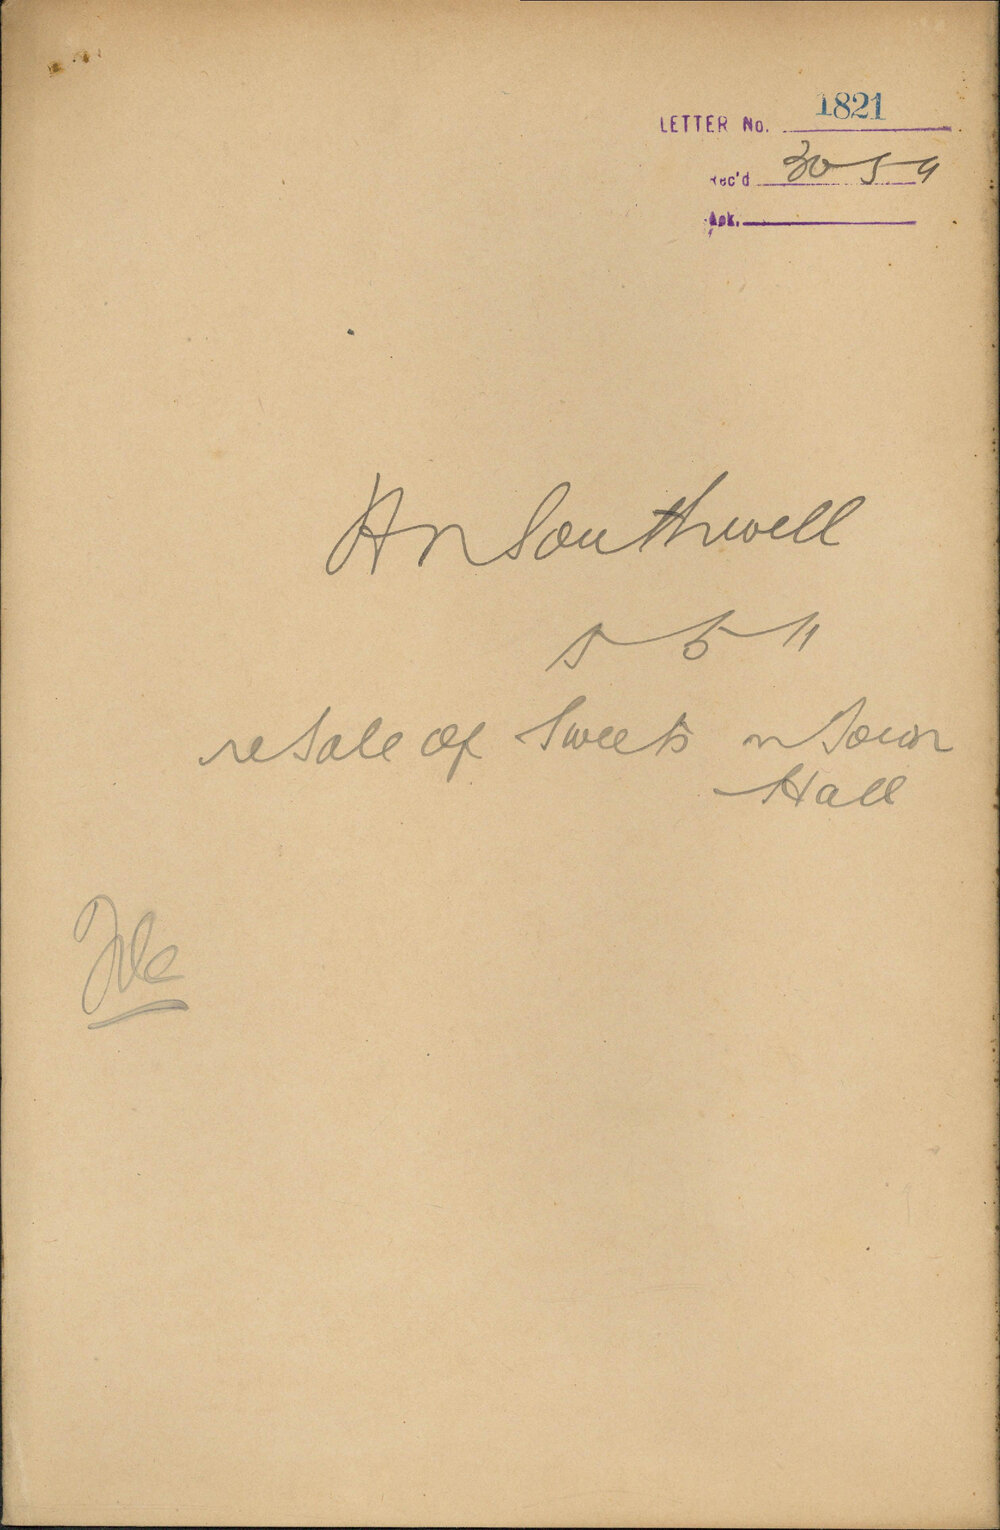 LETTER No. 1821
Rec'd 30-5-11
Ack.
H N Southwell
5-5-11
re Sale of Sweets in Town
Hall
File